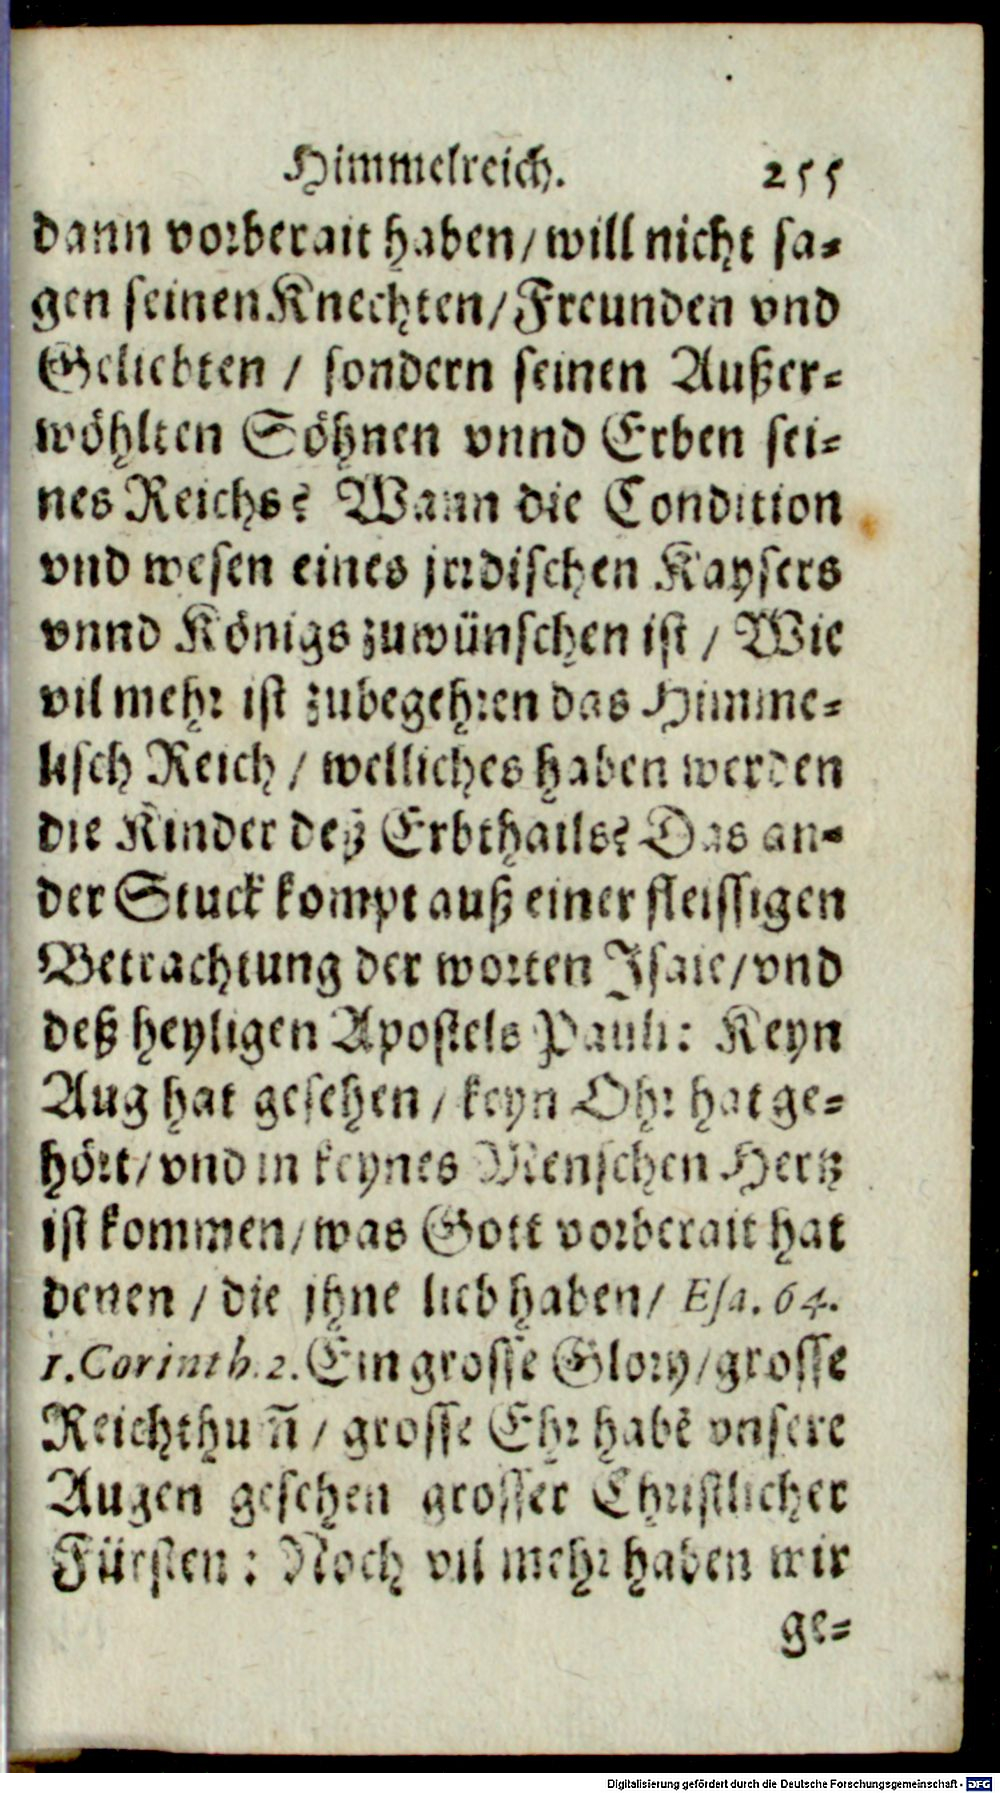 Himmelreich. 255
dann vorberait haben/ will nicht sa-
gen seinen Knechten/ Freunden vnd
Geliebten / sondern seinen Außer-
wöhlten Söhnen vnnd Erben sei-
nes Reichs? Wann die Condition
vnd wesen eines jrrdischen Kaysers
vnnd Königs zuwünschen ist / Wie
vil mehr ist zubegehren das Himme-
lisch Reich / welliches haben werden
die Kinder deß Erbthails? Das an-
der Stuck kompt auß einer fleissigen
Betrachtung der worten Isaie/ vnd
deß heyligen Apostels Pauli: Keyn
Aug hat gesehen / keyn Ohr hat ge-
hört/ vnd in keynes Menschen Hertz
ist kommen/ was Gott vorberait hat
denen / die jhne lieb haben/ Esa. 64.
1. Corinth. 2. Ein grosse Glory/ grosse
Reichthuñ / grosse Ehr habẽ vnsere
Augen gesehen grosser Christlicher
Fürsten : Noch vil mehr haben wir
ge-
Digitalisierung gefördert durch die Deutsche Forschungsgemeinschaft - DFG